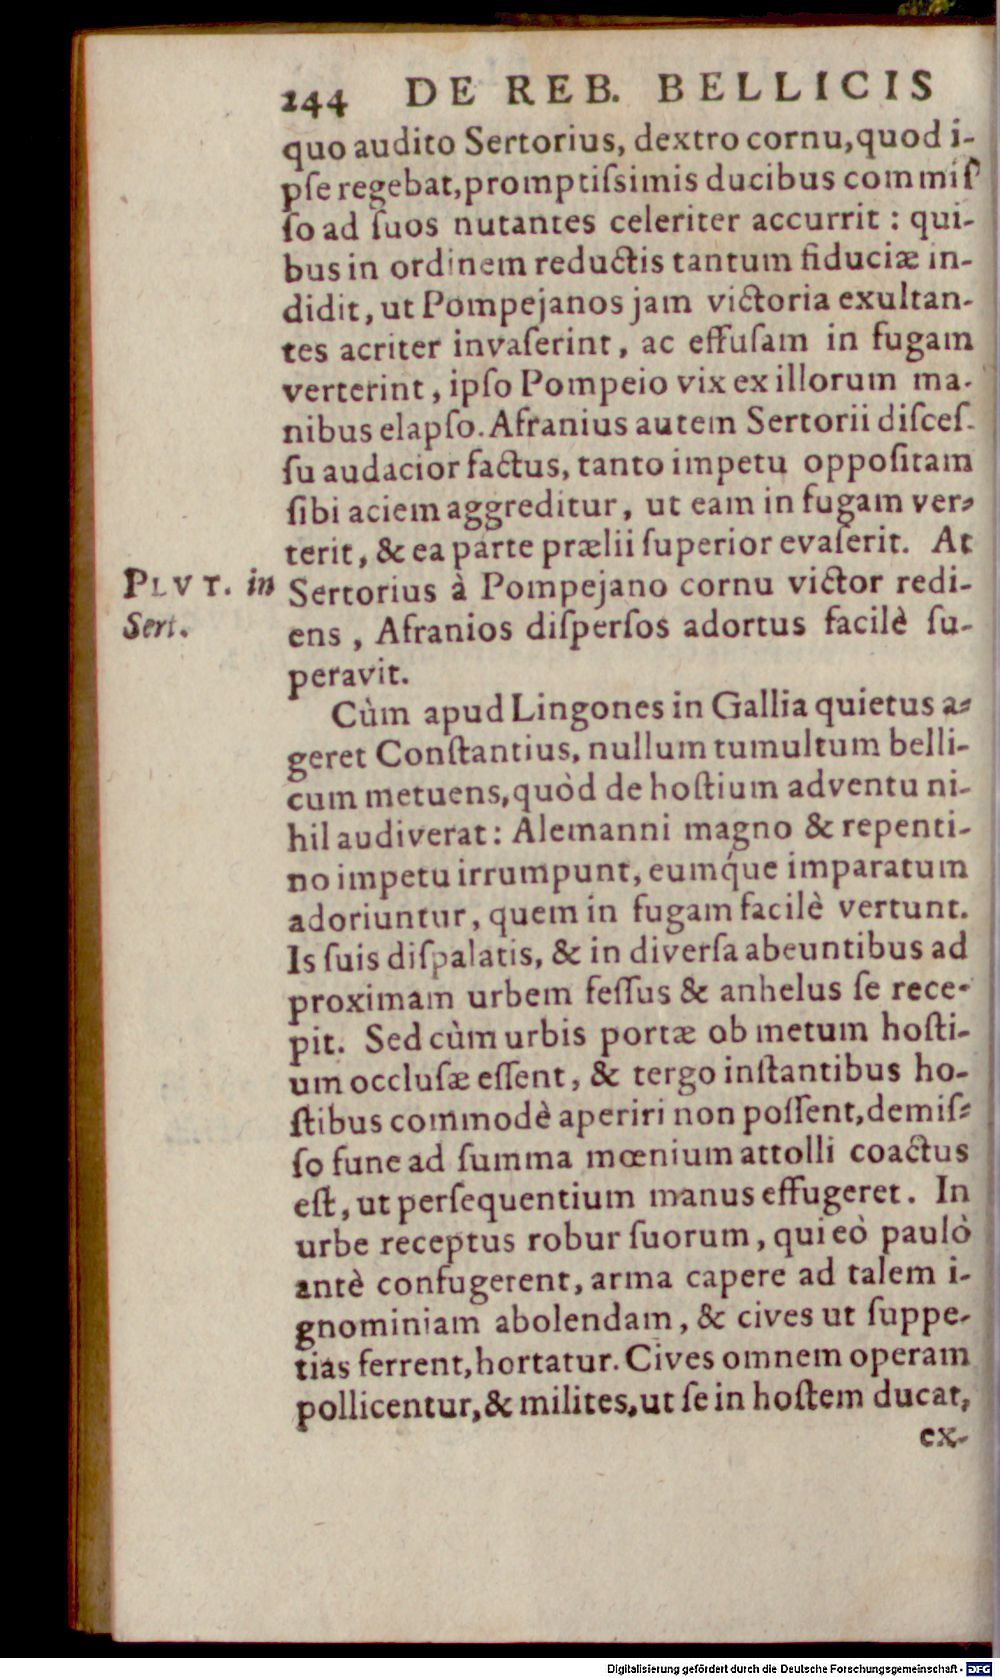 244 DE REB. BELLICIS
quo audito Sertorius, dextro cornu, quod i-
pſe regebat, promptiſsimis ducibus commiſ
ſo ad ſuos nutantes celeriter accurrit : qui-
bus in ordinem reductis tantum fiduciæ in-
didit, ut Pompejanos jam victoria exultan-
tes acriter invaſerint, ac effuſam in fugam
verterint, ipſo Pompeio vix ex illorum ma-
nibus elapſo. Afranius autem Sertorii diſceſ-
ſu audacior factus, tanto impetu oppoſitam
ſibi aciem aggreditur, ut eam in fugam ver-
terit, & ea parte prælii ſuperior evaſerit. At
PLVT. in Sertorius à Pompejano cornu victor redi-
Sert. ens, Afranios diſperſos adortus facilè ſu-
peravit.
Cùm apud Lingones in Gallia quietus a-
geret Conſtantius, nullum tumultum belli-
cum metuens, quòd de hoſtium adventu ni-
hil audiverat: Alemanni magno & repenti-
no impetu irrumpunt, eumq́ue imparatum
adoriuntur, quem in fugam facilè vertunt.
Is ſuis diſpalatis, & in diverſa abeuntibus ad
proximam urbem feſſus & anhelus ſe rece-
pit. Sed cùm urbis portæ ob metum hoſti-
um occluſæ eſſent, & tergo inſtantibus ho-
ſtibus commodè aperiri non poſſent, demiſ-
ſo fune ad ſumma mœnium attolli coactus
eſt, ut perſequentium manus effugeret. In
urbe receptus robur ſuorum, qui eò paulò
antè confugerent, arma capere ad talem i-
gnominiam abolendam, & cives ut ſuppe-
tias ferrent, hortatur. Cives omnem operam
pollicentur, & milites, ut ſe in hoſtem ducat,
ex-
Digitalisierung gefördert durch die Deutsche Forschungsgemeinschaft - DFG